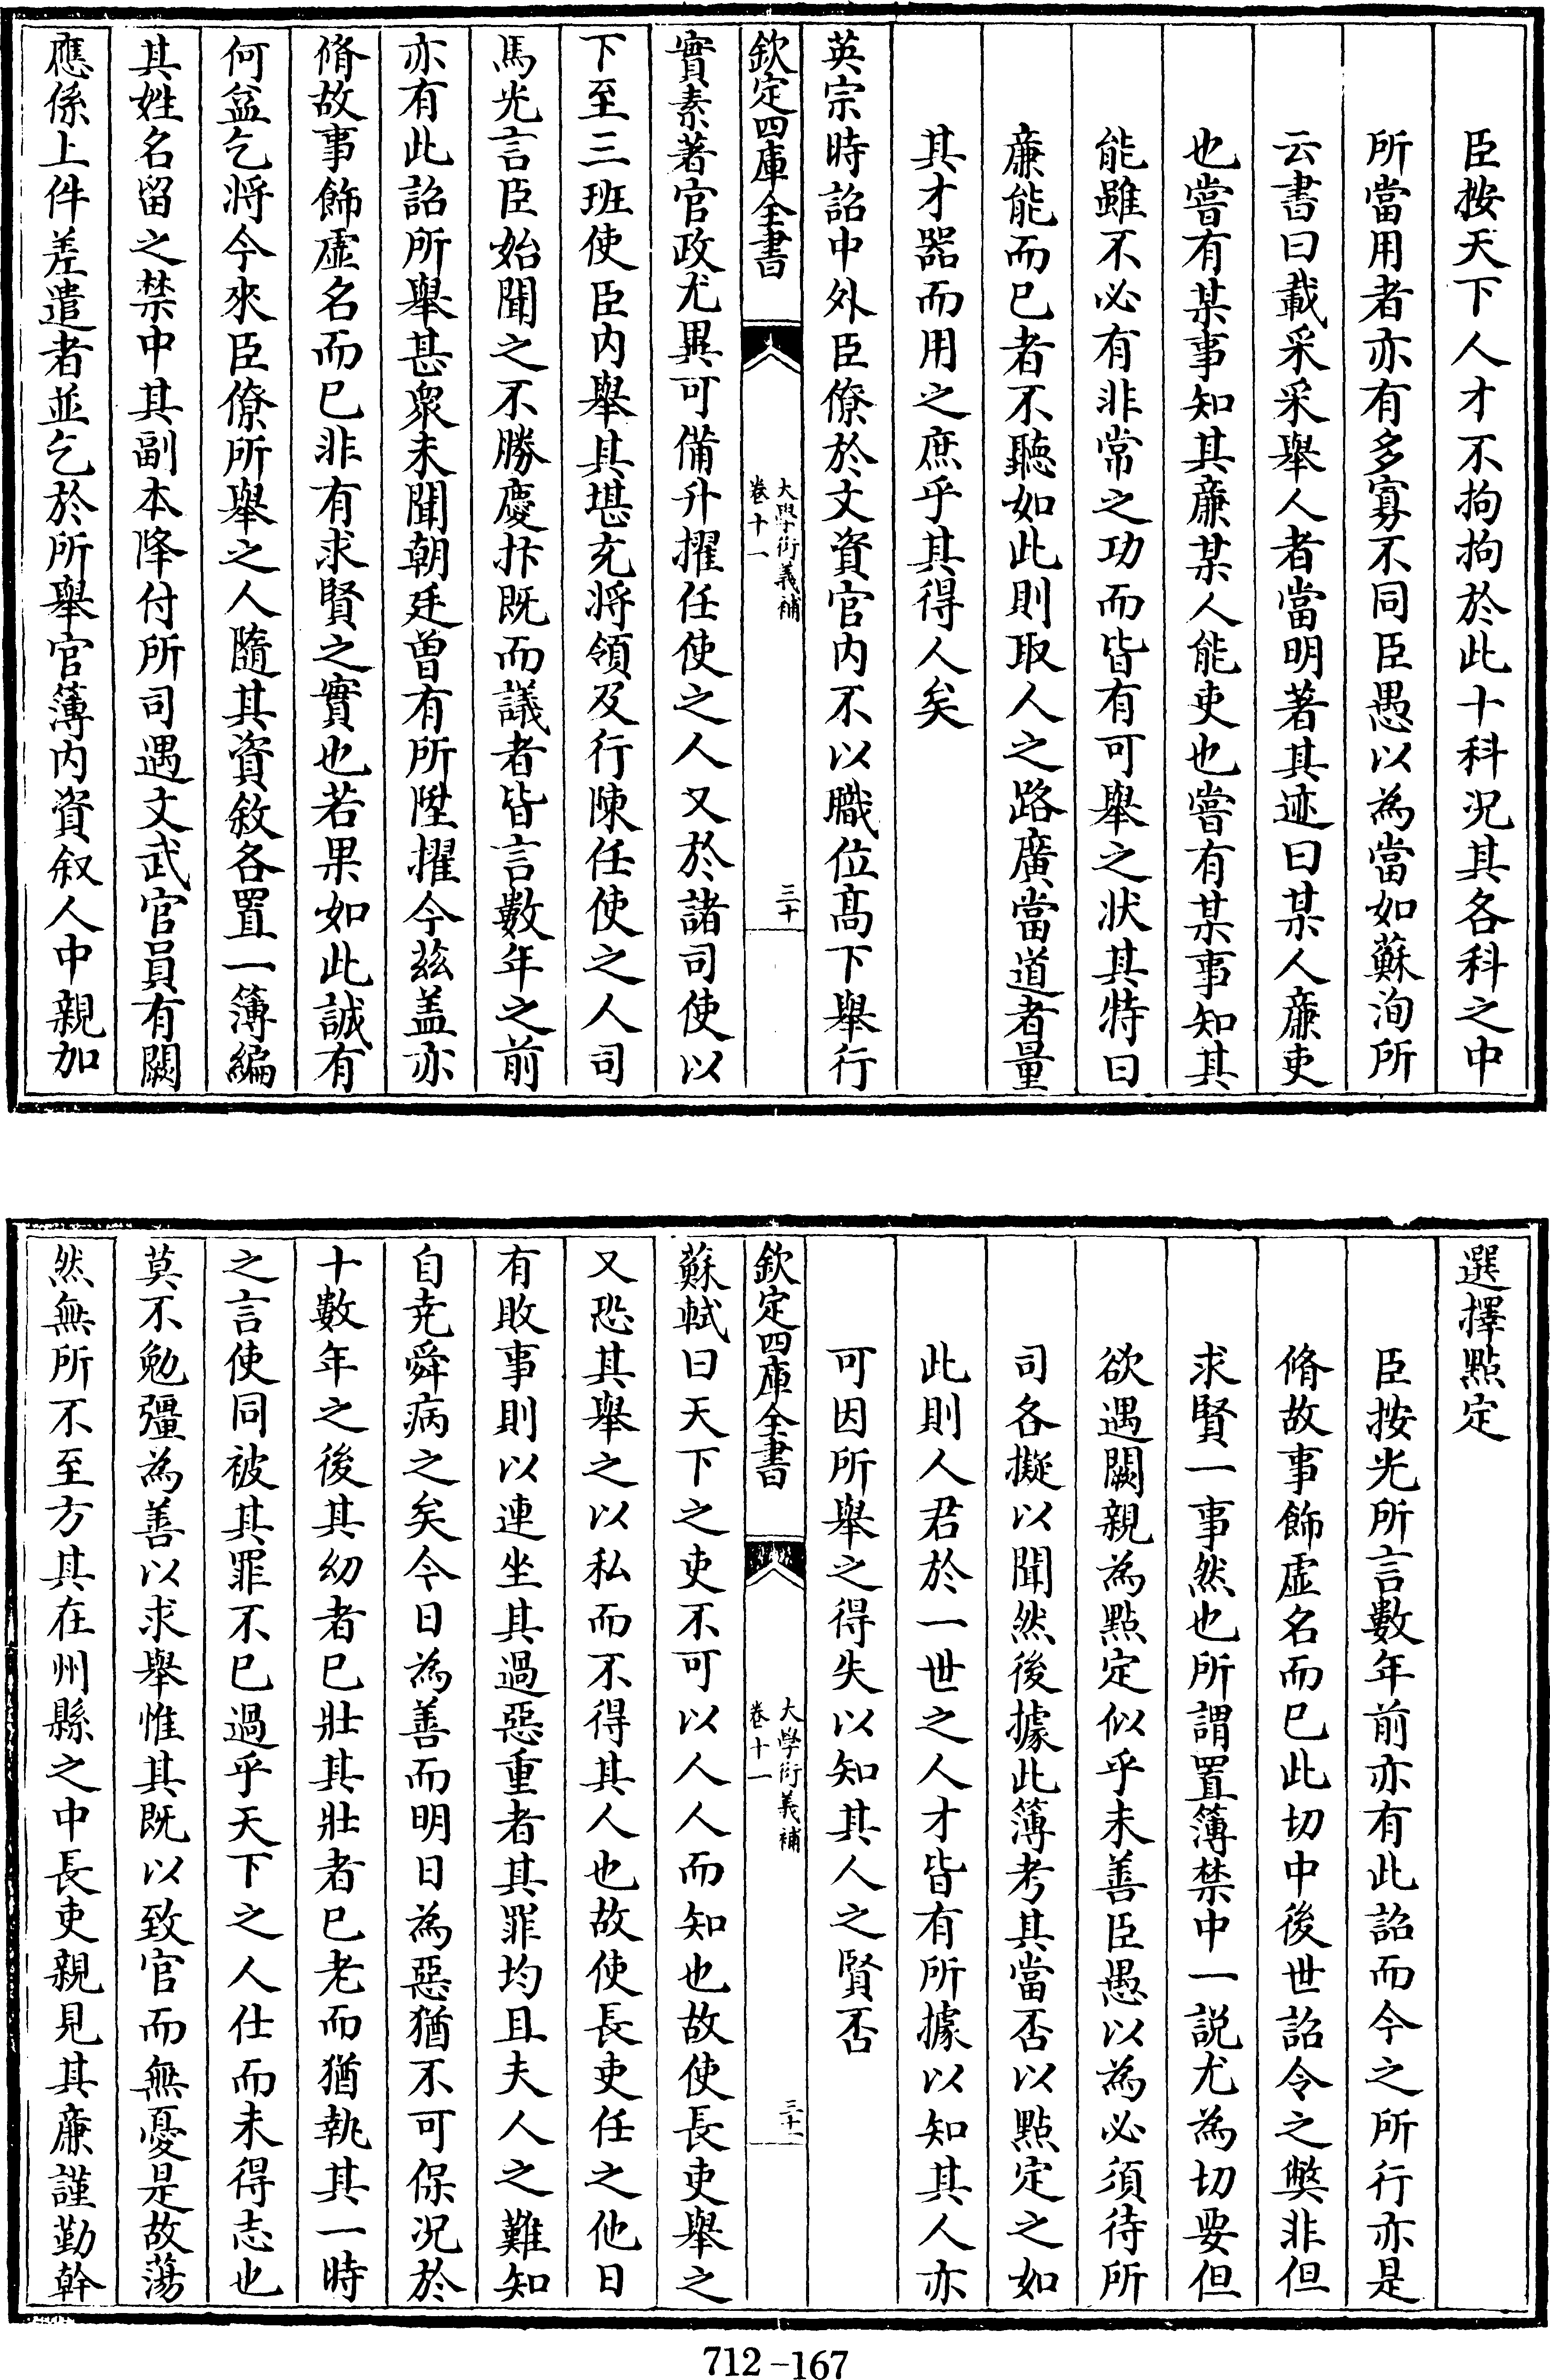 臣按天下人才不拘拘於此十科况其各科之中
所當用者亦有多寡不同臣愚以為當如蘇洵所
云書曰載采采舉人者當明著其迹曰某人廉吏
也嘗有某事知其廉某人能吏也嘗有某事知其
能雖不必有非常之功而皆有可舉之状其特曰
廉能而已者不聽如此則取人之路廣當道者量
其才器而用之庶乎其得人矣
英宗時詔中外臣僚於文資官内不以職位髙下舉行
欽定四庫全書
大學衍義補
卷十一
三十
實素著官政尤異可備升擢任使之人又於諸司使以
下至三班使臣内舉其堪充將領及行陳任使之人司
馬光言臣始聞之不勝慶抃既而議者皆言數年之前
亦有此詔所舉甚衆未聞朝廷曾有所陞擢今兹盖亦
脩故事飾虚名而已非有求賢之實也若果如此誠有
何益乞將今來臣僚所舉之人隨其資敘各置一簿編
其姓名留之禁中其副本降付所司遇文武官員有闕
應係上件差遣者並乞於所舉官簿内資叙人中親加
選擇點定
臣按光所言數年前亦有此詔而今之所行亦是
脩故事飾虚名而已此切中後世詔令之弊非但
求賢一事然也所謂置簿禁中一説尤為切要但
欲遇闕親為點定似乎未善臣愚以為必須待所
司各擬以聞然後據此簿考其當否以點定之如
此則人君於一世之人才皆有所據以知其人亦
可因所舉之得失以知其人之賢否
欽定四庫全書
大學衍義補
卷十一
三十一
蘇軾曰天下之吏不可以人人而知也故使長吏舉之
又恐其舉之以私而不得其人也故使長吏任之他日
有敗事則以連坐其過惡重者其罪均且夫人之難知
自尭舜病之矣今日為善而明日為惡猶不可保况於
十數年之後其幼者已壯其壯者已老而猶執其一時
之言使同被其罪不已過乎天下之人仕而未得志也
莫不勉彊為善以求舉惟其既以致官而無憂是故蕩
然無所不至方其在州縣之中長吏親見其廉謹勤幹
712-167